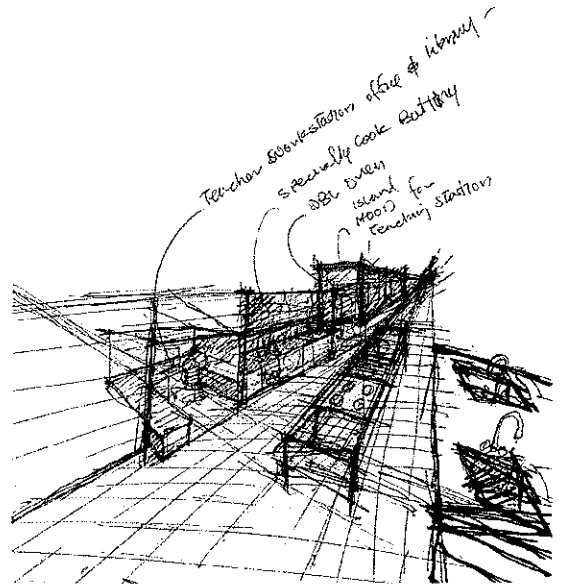 Teacher Workstation office & library
Specialty Cook Battery
DBL Oven
island
HOOD for
teaching station